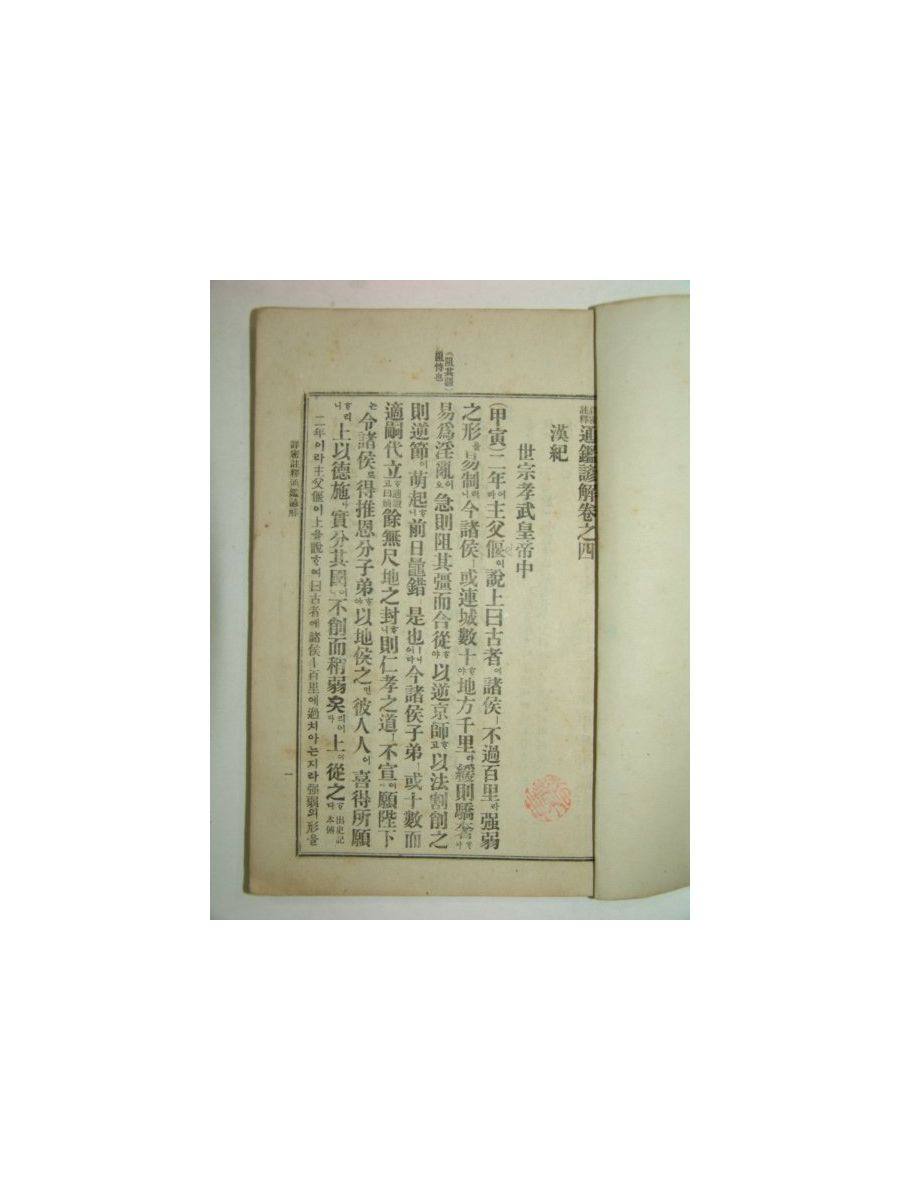 通鑑諺解卷之四
漢紀
世宗孝武皇帝中
(甲寅)二年이라主父偃이說上曰古者에諸侯ㅣ不過百里라强弱
之形을易制러니今諸侯ㅣ或連城數十하야地方千里라緩則驕奢하야
易爲淫亂이오急則阻其彊而合從하야以逆京師하고以法割削之
則逆節이萌起하니前日鼂錯ㅣ是也ㅣ니이다今諸侯子弟ㅣ或十數而
適嗣代立하고餘無尺地之封하니則仁孝之道ㅣ不宣이니願陛下
는令諸侯로得推恩分子弟하야以地侯之면彼人人이喜得所願
하리니上以德施나實分其國이라不削而稍弱矣리이다上이從之하다出史記本傳
二年이라主父偃이上을說하여曰古者에諸侯ㅣ百里에過치아는지라强弱의形을
詳密註釋通鑑諺解
一